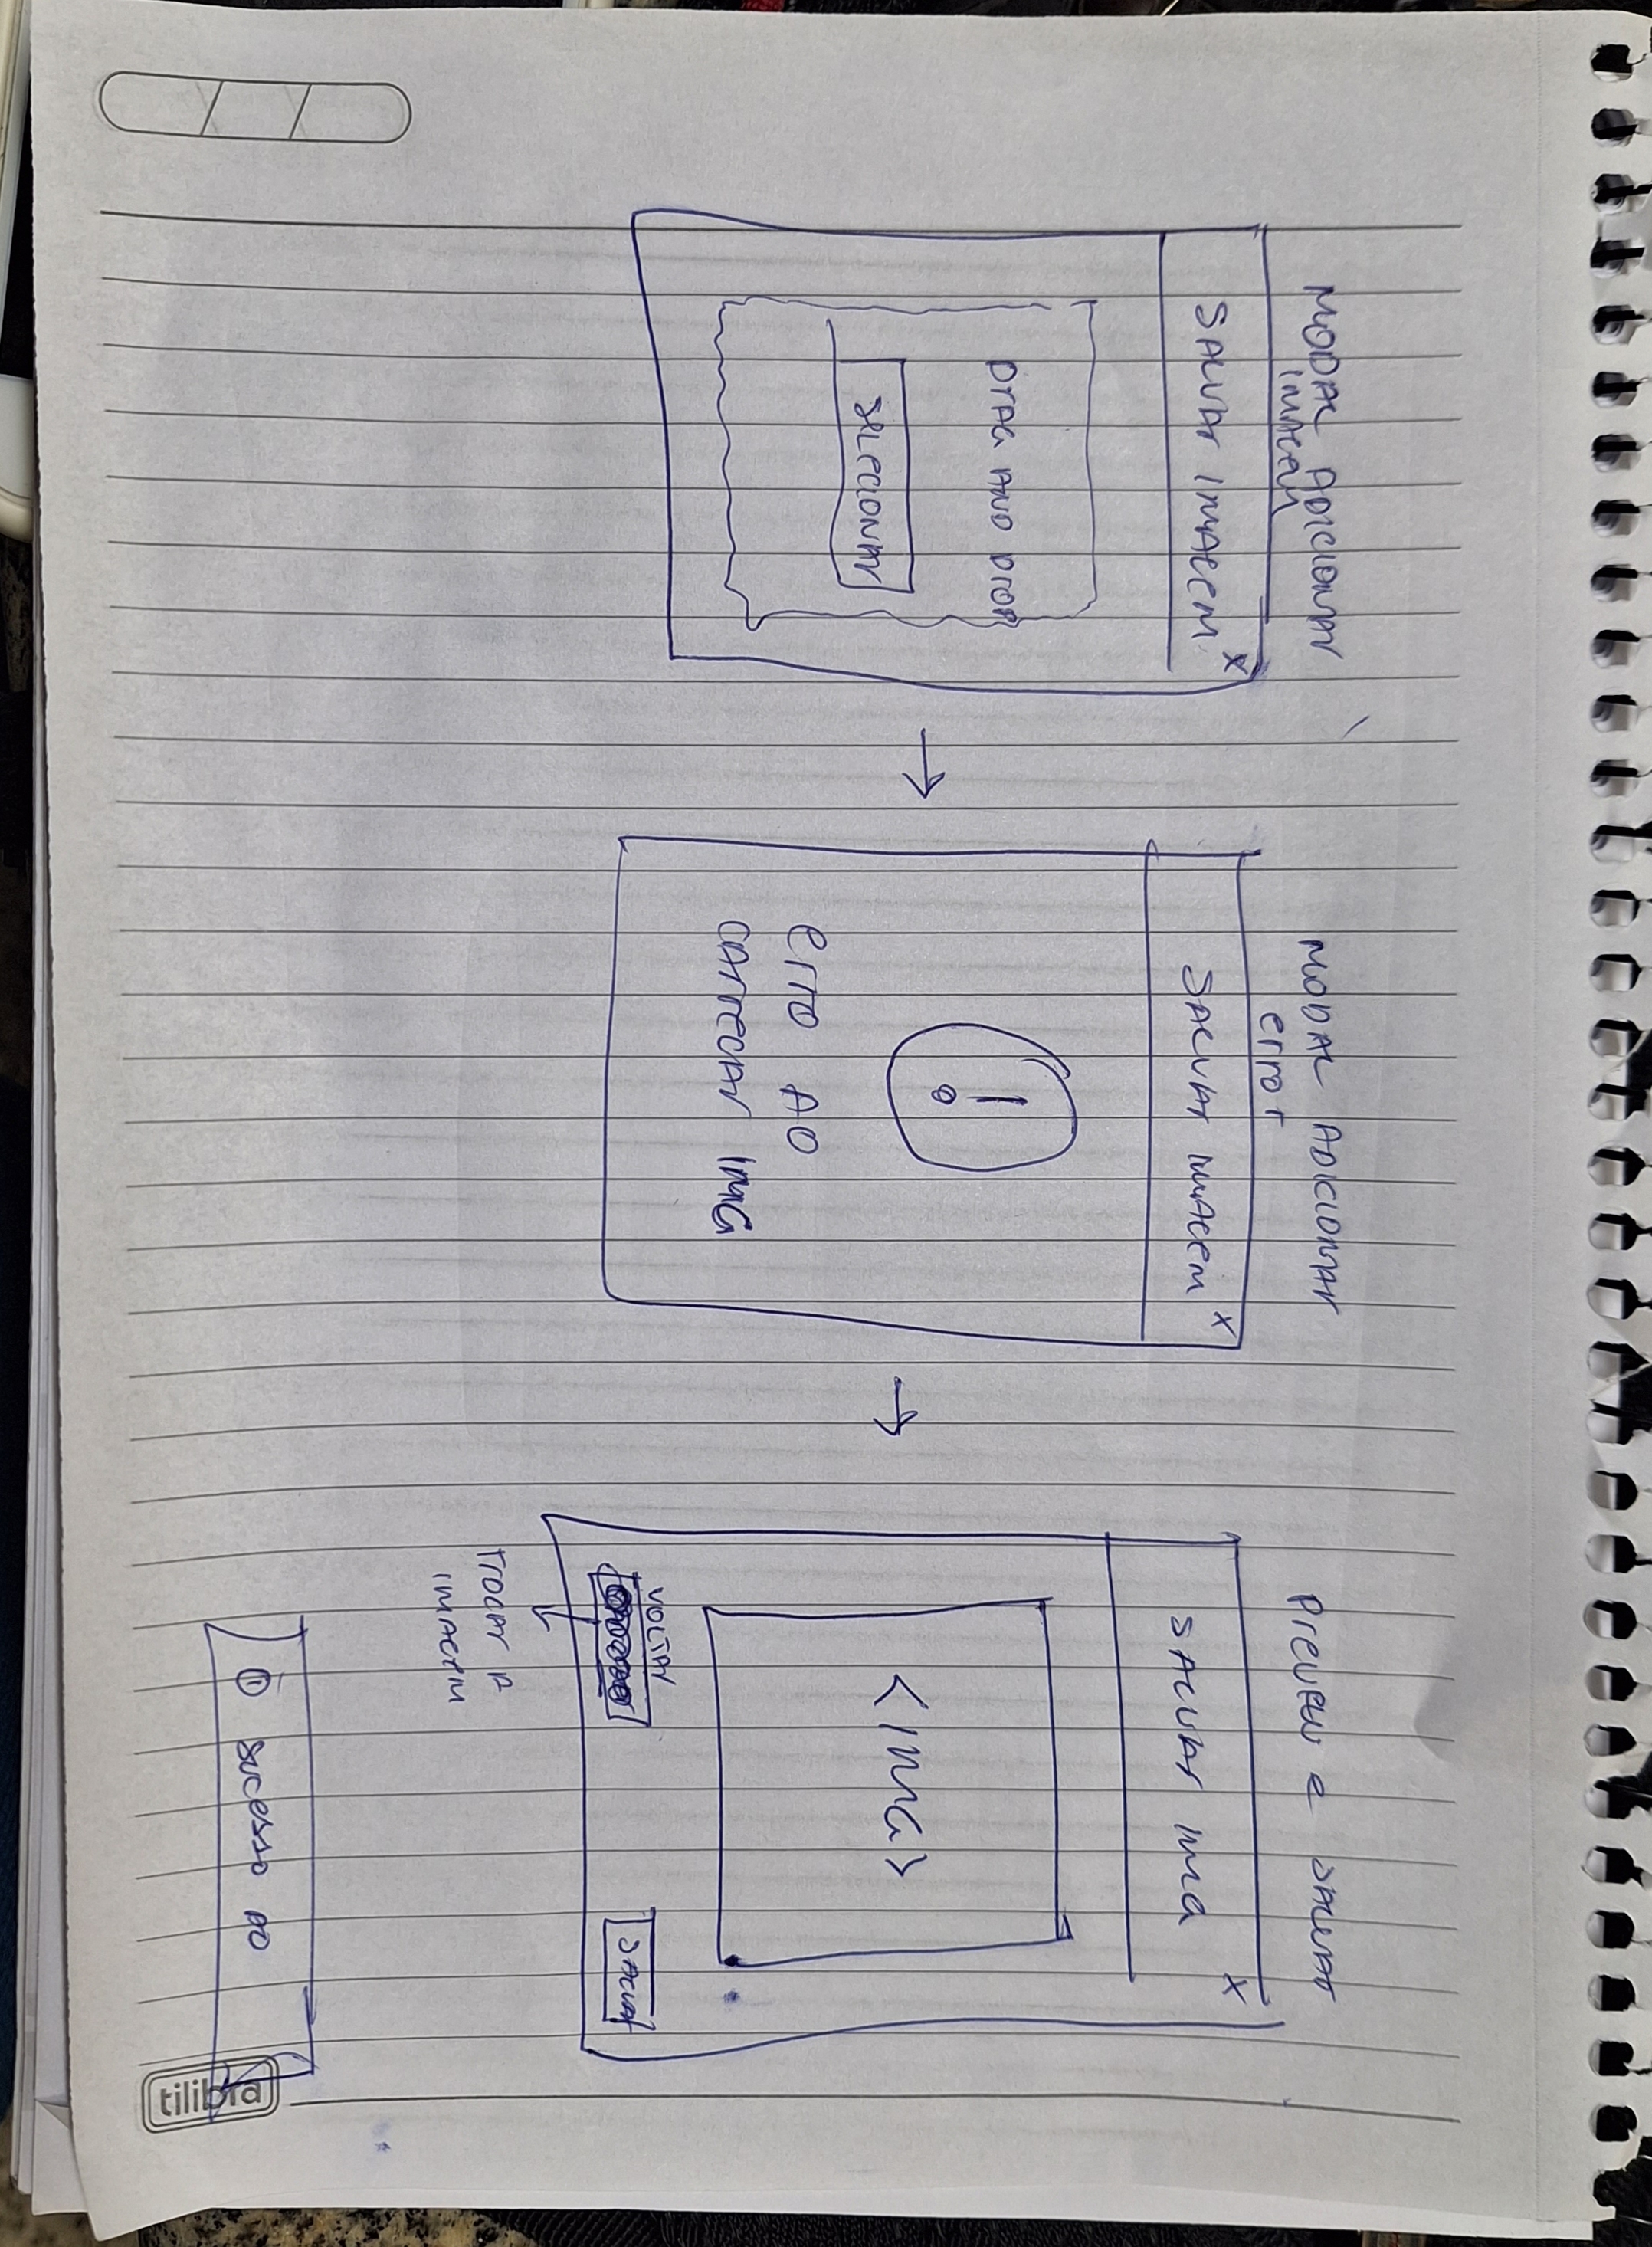 MODAL ADICIONAR
IMAGEM
SALVAR IMAGEM X
DRAG AND DROP
SELECIONAR
MODAL ADICIONAR
error
SALVAR IMAGEM X
erro AO
CARREGAR IMG
Preview e SALVAR
SALVAR IMG X
<IMG>
VOLTAR
SALVAR
TROCAR A
IMAGEM
SUCESSO AO
tilibra